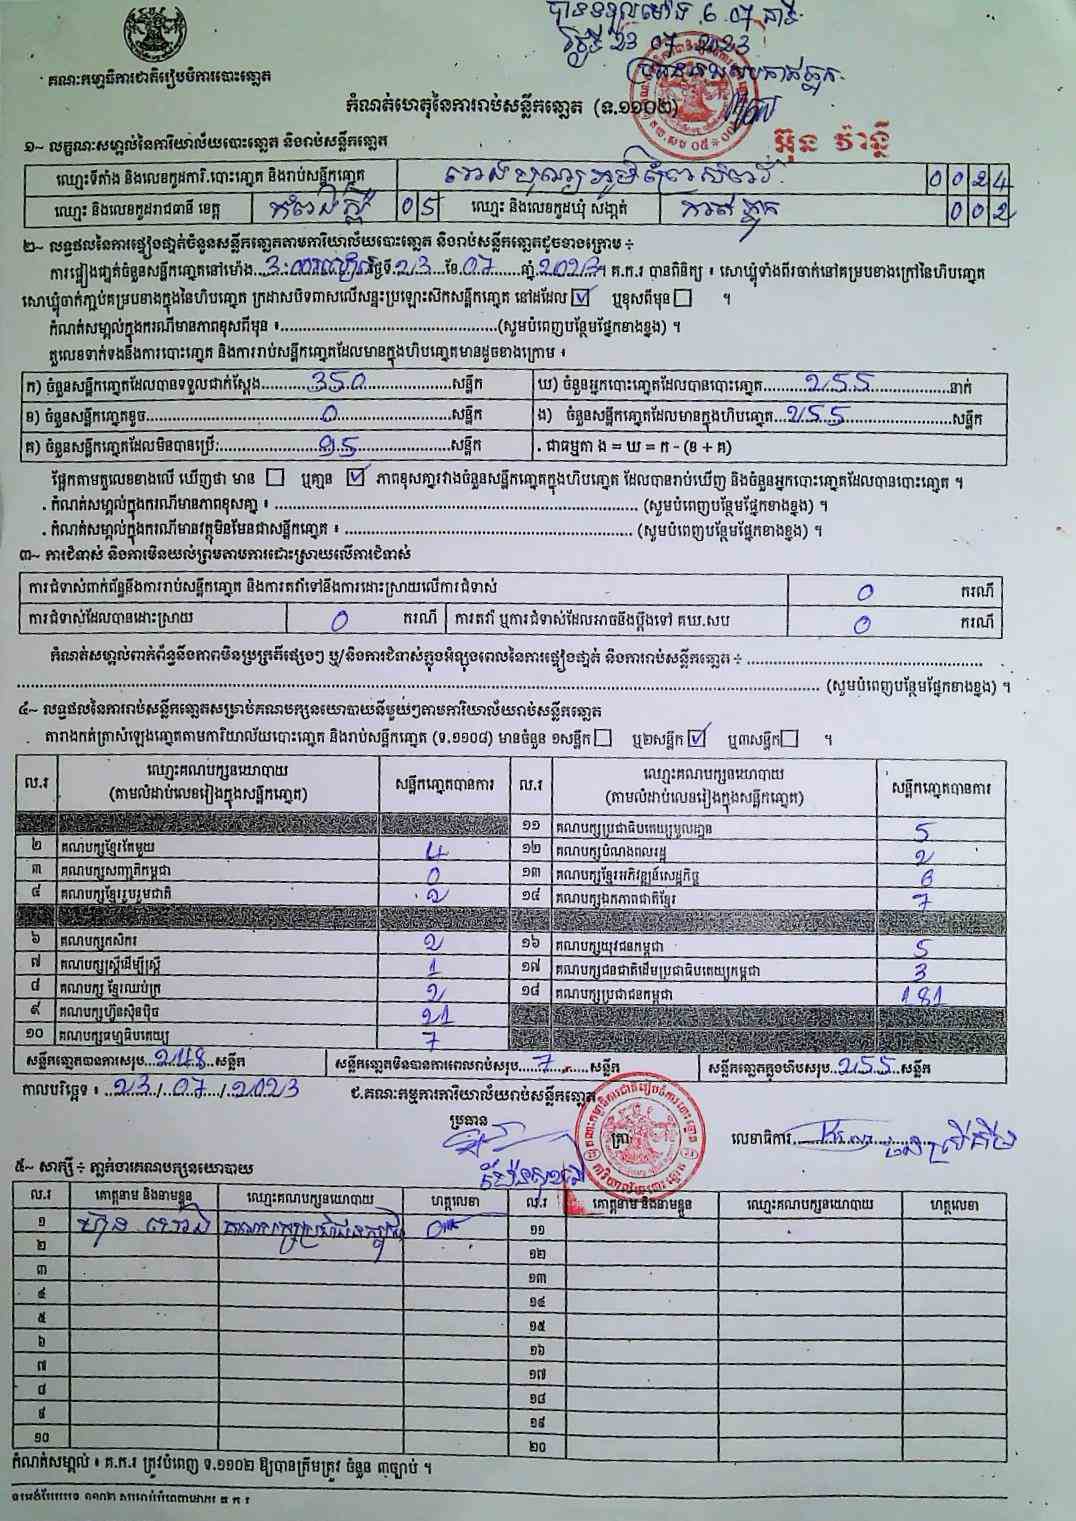 បានទទួលម៉ោង 6 07 នាទី
ថ្ងៃទី 23 07 2023
គណៈកម្មាធិការជាតិរៀបចំការបោះឆ្នោត
កំណត់ហេតុនៃការរាប់សន្លឹកឆ្នោត (ទ.១១០២)
អ៊ុន វ៉ាន្នី
១~ លក្ខណៈសម្គាល់នៃការិយាល័យបោះឆ្នោត និងរាប់សន្លឹកឆ្នោត
ឈ្មោះទីតាំង និងលេខកូដការិ.បោះឆ្នោត និងរាប់សន្លឹកឆ្នោត 0024
ឈ្មោះ និងលេខកូដរាជធានី ខេត្ត កំពង់ស្ពឺ 05 ឈ្មោះ និងលេខកូដឃុំ សង្កាត់ 002
២~ លទ្ធផលនៃការផ្ទៀងផ្ទាត់ចំនួនសន្លឹកឆ្នោតតាមការិយាល័យបោះឆ្នោត និងរាប់សន្លឹកឆ្នោតដូចខាងក្រោម ÷
ការផ្ទៀងផ្ទាត់ចំនួនសន្លឹកឆ្នោតនៅម៉ោង 3:00 រសៀល ថ្ងៃទី 23 ខែ 07 ឆ្នាំ 2023។ គ.ក.រ បានពិនិត្យ ៖ សោឃ្លុំទាំងពីរចាក់នៅគម្របខាងក្រៅនៃហិបឆ្នោត
សោឃ្លុំចាក់ភ្ជាប់គម្របខាងក្នុងនៃហិបឆ្នោត ក្រដាសបិទពាសលើសន្ទះប្រឡោះស៊កសន្លឹកឆ្នោត នៅដដែល ☑ ឬខុសពីមុន ☐ ។
កំណត់សម្គាល់ក្នុងករណីមានភាពខុសពីមុន ៖ (សូមបំពេញបន្ថែមផ្នែកខាងខ្នង) ។
តួលេខទាក់ទងនឹងការបោះឆ្នោត និងការរាប់សន្លឹកឆ្នោតដែលមានក្នុងហិបឆ្នោតមានដូចខាងក្រោម ៖
ក) ចំនួនសន្លឹកឆ្នោតដែលបានទទួលជាក់ស្តែង 350 សន្លឹក ឃ) ចំនួនអ្នកបោះឆ្នោតដែលបានបោះឆ្នោត 255 នាក់
ខ) ចំនួនសន្លឹកឆ្នោតខូច 0 សន្លឹក ង) ចំនួនសន្លឹកឆ្នោតដែលមានក្នុងហិបឆ្នោត 255 សន្លឹក
គ) ចំនួនសន្លឹកឆ្នោតដែលមិនបានប្រើ: 95 សន្លឹក . ជាធម្មតា ង = ឃ = ក - (ខ + គ)
ផ្អែកតាមតួលេខខាងលើ ឃើញថា មាន ☐ ឬគ្មាន ☑ ភាពខុសគ្នារវាងចំនួនសន្លឹកឆ្នោតក្នុងហិបឆ្នោត ដែលបានរាប់ឃើញ និងចំនួនអ្នកបោះឆ្នោតដែលបានបោះឆ្នោត ។
. កំណត់សម្គាល់ក្នុងករណីមានភាពខុសគ្នា ៖ (សូមបំពេញបន្ថែមផ្នែកខាងខ្នង) ។
. កំណត់សម្គាល់ក្នុងករណីមានវត្ថុមិនមែនជាសន្លឹកឆ្នោត ៖ (សូមបំពេញបន្ថែមផ្នែកខាងខ្នង) ។
៣~ ការជំទាស់ និងការមិនយល់ព្រមតាមការដោះស្រាយលើការជំទាស់
ការជំទាស់ពាក់ព័ន្ធនឹងការរាប់សន្លឹកឆ្នោត និងការតវ៉ាទៅនឹងការដោះស្រាយលើការជំទាស់ 0 ករណី
ការជំទាស់ដែលបានដោះស្រាយ 0 ករណី ការតវ៉ា ឬការជំទាស់ដែលអាចនឹងប្តឹងទៅ គឃ.សប 0 ករណី
កំណត់សម្គាល់ពាក់ព័ន្ធនឹងភាពមិនប្រក្រតីផ្សេងៗ ឬ/និងការជំទាស់ក្នុងអំឡុងពេលនៃការផ្ទៀងផ្ទាត់ និងការរាប់សន្លឹកឆ្នោត ÷
(សូមបំពេញបន្ថែមផ្នែកខាងខ្នង) ។
៤~ លទ្ធផលនៃការរាប់សន្លឹកឆ្នោតសម្រាប់គណបក្សនយោបាយនីមួយៗតាមការិយាល័យរាប់សន្លឹកឆ្នោត
តារាងកត់ត្រាសំឡេងឆ្នោតតាមការិយាល័យបោះឆ្នោត និងរាប់សន្លឹកឆ្នោត (ទ.១១០៨) មានចំនួន ១សន្លឹក ☐ ឬ២សន្លឹក ☑ ឬ៣សន្លឹក ☐ ។
ល.រ ឈ្មោះគណបក្សនយោបាយ សន្លឹកឆ្នោតបានការ ល.រ ឈ្មោះគណបក្សនយោបាយ សន្លឹកឆ្នោតបានការ
(តាមលំដាប់លេខរៀងក្នុងសន្លឹកឆ្នោត) (តាមលំដាប់លេខរៀងក្នុងសន្លឹកឆ្នោត)
១១ គណបក្សប្រជាធិបតេយ្យមូលដ្ឋាន 5
២ គណបក្សខ្មែរតែមួយ 4 ១២ គណបក្សបំណងពលរដ្ឋ 2
៣ គណបក្សសញ្ជាតិកម្ពុជា 0 ១៣ គណបក្សខ្មែរអភិវឌ្ឍន៍សេដ្ឋកិច្ច 6
៤ គណបក្សខ្មែររួបរួមជាតិ 2 ១៤ គណបក្សឯកភាពជាតិខ្មែរ 7
៦ គណបក្សកសិករ 2 ១៦ គណបក្សយុវជនកម្ពុជា 5
៧ គណបក្សស្ត្រីដើម្បីស្ត្រី 1 ១៧ គណបក្សជនជាតិដើមប្រជាធិបតេយ្យកម្ពុជា 3
៨ គណបក្ស ខ្មែរឈប់ក្រ 2 ១៨ គណបក្សប្រជាជនកម្ពុជា 181
៩ គណបក្សហ្វ៊ុនស៊ិនប៉ិច 21
១០ គណបក្សធម្មាធិបតេយ្យ 7
សន្លឹកឆ្នោតបានការសរុប 248 សន្លឹក សន្លឹកឆ្នោតមិនបានការពេលរាប់សរុប 7 សន្លឹក សន្លឹកឆ្នោតក្នុងហិបសរុប 255 សន្លឹក
កាលបរិច្ឆេទ ៖ 23/07/2023 ជ.គណៈកម្មការការិយាល័យរាប់សន្លឹកឆ្នោត
ប្រធាន
ត្រា លេខាធិការ
៥~ សាក្សី ÷ ភ្នាក់ងារគណបក្សនយោបាយ
ល.រ គោត្តនាម និងនាមខ្លួន ឈ្មោះគណបក្សនយោបាយ ហត្ថលេខា ល.រ គោត្តនាម និងនាមខ្លួន ឈ្មោះគណបក្សនយោបាយ ហត្ថលេខា
១ គណបក្សប្រជាជនកម្ពុជា ១១
២ ១២
៣ ១៣
៤ ១៤
៥ ១៥
៦ ១៦
៧ ១៧
៨ ១៨
៩ ១៩
១០ ២០
កំណត់សម្គាល់ ៖ គ.ក.រ ត្រូវបំពេញ ទ.១១០២ ឱ្យបានត្រឹមត្រូវ ចំនួន ៣ច្បាប់ ។